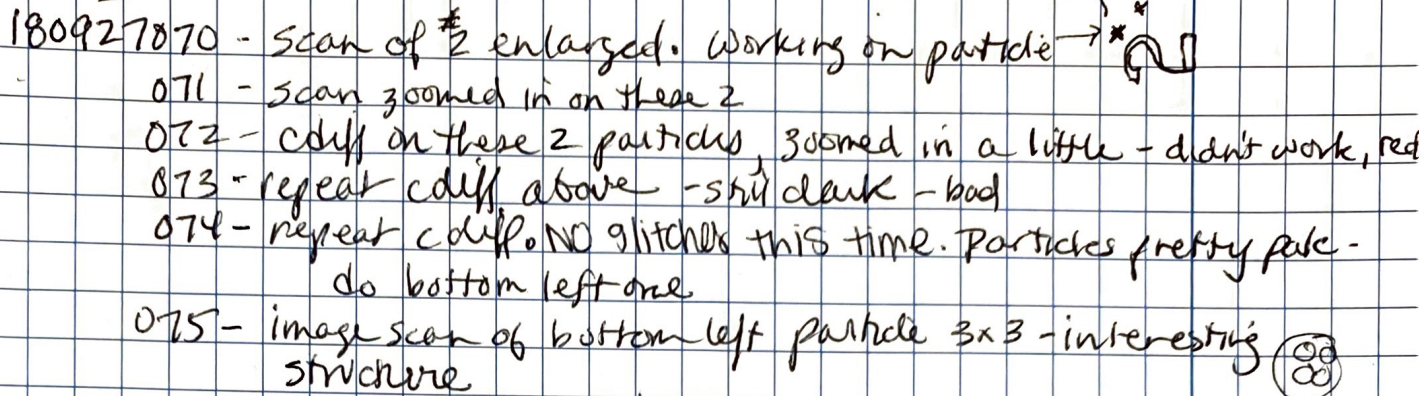 180927070 - scan of #2 enlarged. Working on particle →
071 - scan zoomed in on these 2
072 - cdiff on these 2 particles, zoomed in a little - didn't work, red
073 - repeat cdiff above - still dark - bad
074 - repeat cdiff. No glitches this time. Particles pretty pale -
do bottom left one
075 - image scan of bottom left particle 3x3 - interesting
structure